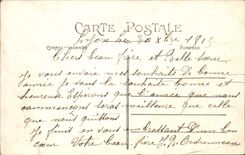 CARTE POSTALE
CORRESPONDANCE
ADRESSE
le 30 Xbre 191
Chers beau frère et Belle sœur
Je vous envoie mes souhaits de bonne
année Je vous la souhaite bonne et
heureuse Espérons que l'année que nous
commençons sera meilleure que celle
que nous quittons
Je finit en vous embrassant d'un bon
cœur Votre beau frère